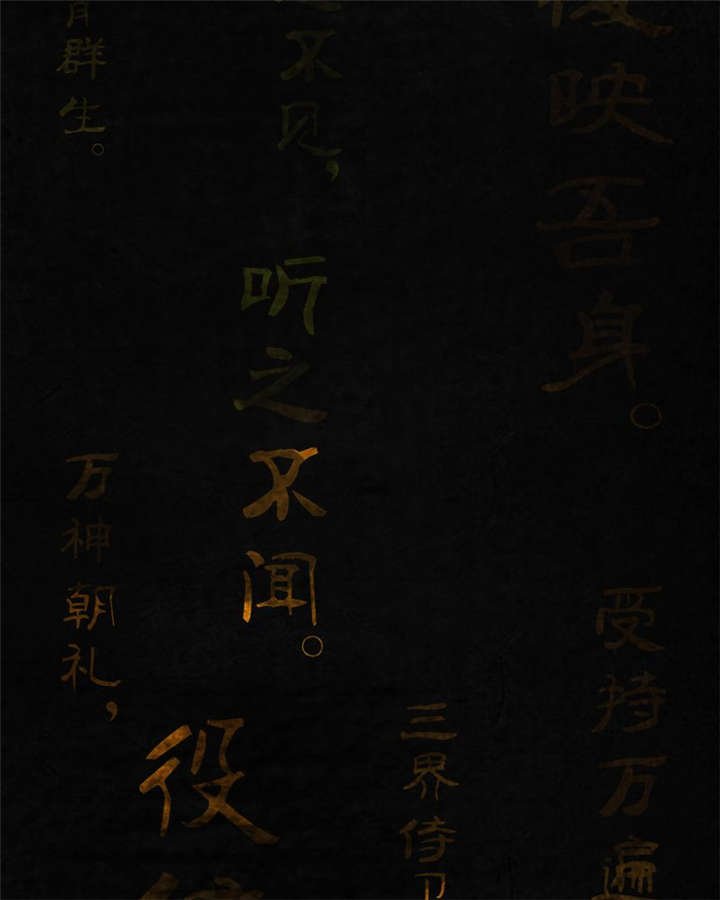 映吾身。
不见，
听之不闻。
群生。
受持万遍
三界侍
万神朝礼，
役